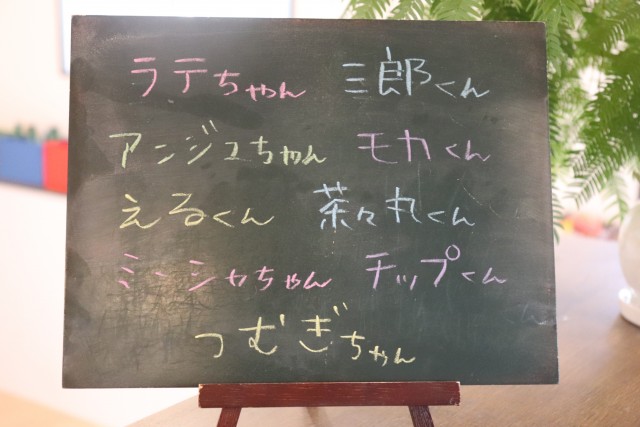 ラテちゃん 三郎くん
アンジュちゃん モカくん
えるくん 茶々丸くん
ミーシャちゃん チップくん
つむぎちゃん